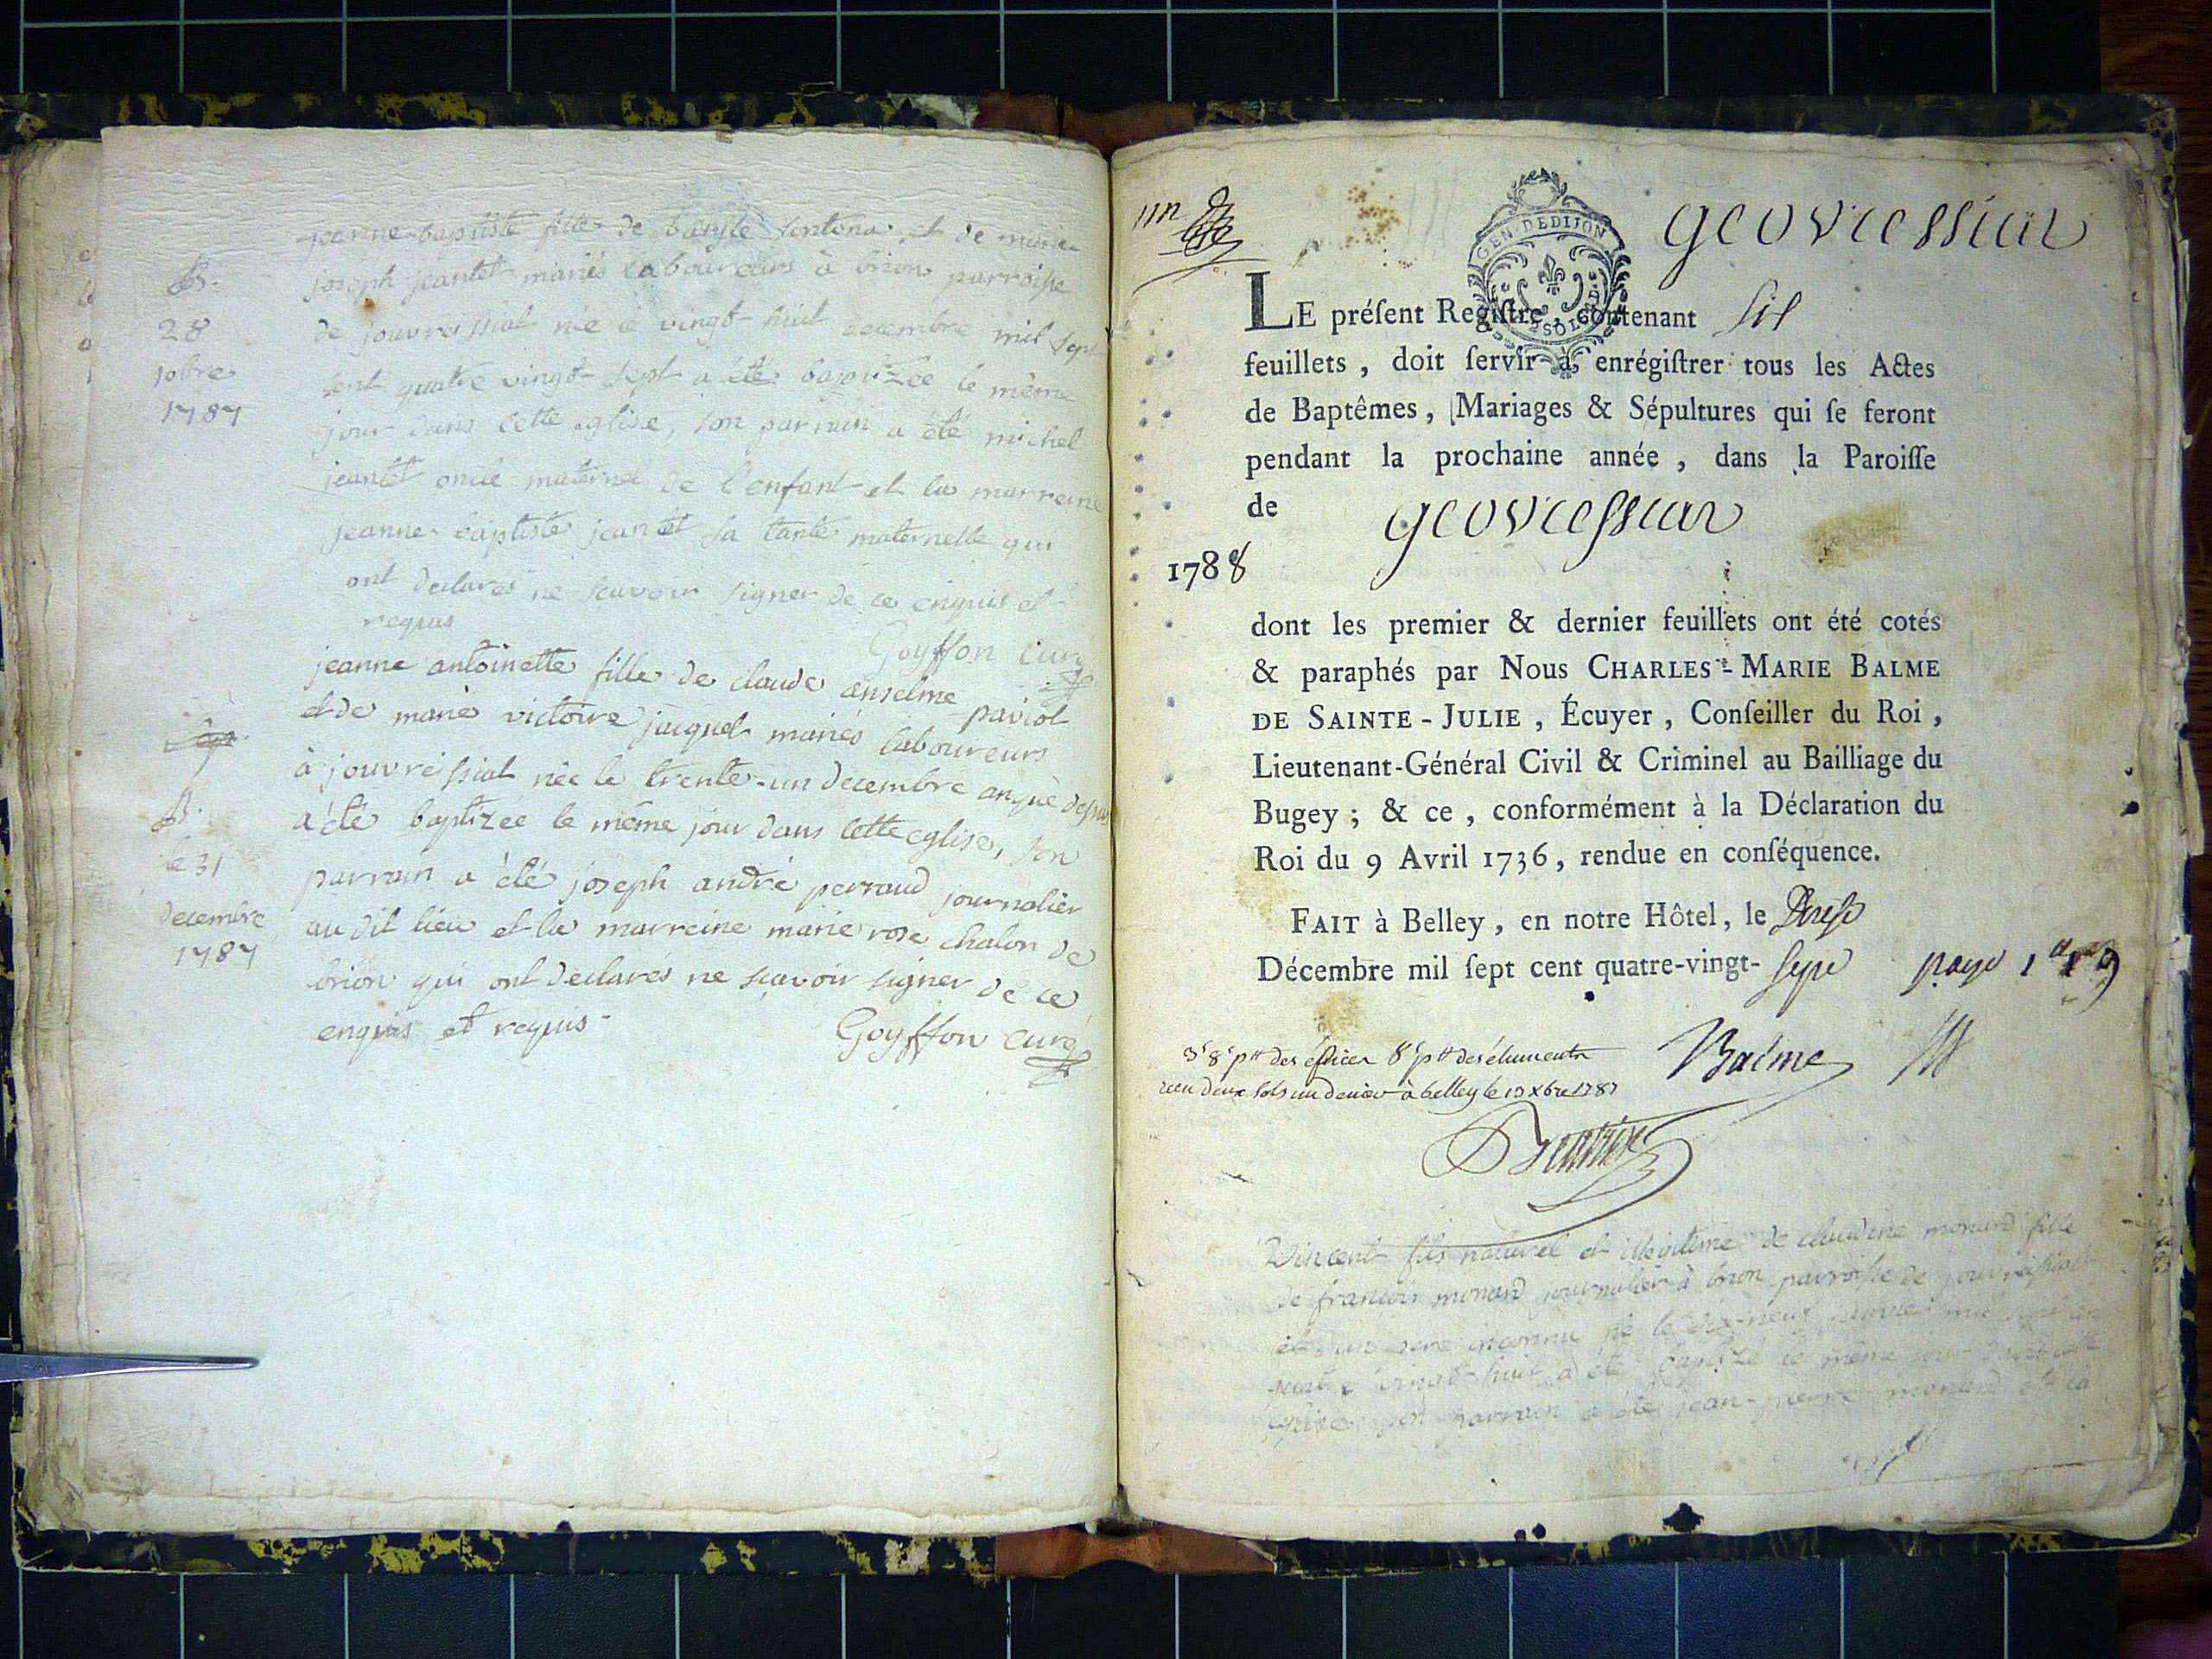 jeanne-baptiste fille de basyle et de marie
joseph jeantet mariés laboureurs à brion parroisse
de jouvreissiat née le vingt-huit decembre mil sept
cent quatre vingt-sept a été baptizée le même
jour dans cette eglise, son parrain a été michel
jeantet oncle maternel de l'enfant et la marreine
jeanne baptiste jeantet sa tante maternelle qui
ont declarés ne scavoir signer de ce enquis et
requis
Goyffon curé
B.
28
xbre
1787
jeanne antoinette fille de claude anselme paviot
et de marie victoire jacquet mariés laboureurs
à jouvreissiat née le trente-un decembre an que dessus
a été baptizée le même jour dans cette eglise, son
parrain a été joseph andré perraud journalier
au dit lieu et la marreine marie rose chalon de
brion qui ont declarés ne scavoir signer de ce
enquis et requis
Goyffon curé
B.
le 31
decembre
1787
un
GEN. DE DIJON
geovressiat
LE préſent Regiſtre, contenant six
feuillets, doit ſervir à enrégiſtrer tous les Actes
de Baptêmes, Mariages & Sépultures qui ſe feront
pendant la prochaine année, dans la Paroiſſe
de geovressiat
1788
dont les premier & dernier feuillets ont été cotés
& paraphés par Nous CHARLES-MARIE BALME
DE SAINTE-JULIE, Écuyer, Conſeiller du Roi,
Lieutenant-Général Civil & Criminel au Bailliage du
Bugey; & ce, conformément à la Déclaration du
Roi du 9 Avril 1736, rendue en conſéquence.
FAIT à Belley, en notre Hôtel, le
Décembre mil ſept cent quatre-vingt- sept
Balme
3s 8d ptt des 8d ptt des
reçu deux sols un denier à belley le 13 xbre 1787
Vincent fils naturel et illegitime de claudine monard fille
de francois monard journalier à brion parroisse de jouvreissiat
et d'un pere inconnu né le dix-neuf janvier mil sept cent
quatre vingt-huit a été baptizé le même jour dans cette
eglise son parrain a été jean-pierre monard et la